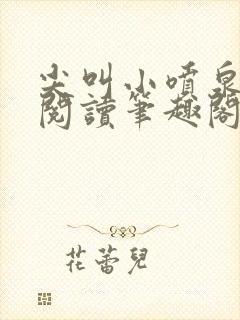 尖叫小噴泉
閱讀筆趣閣
花蕾兒